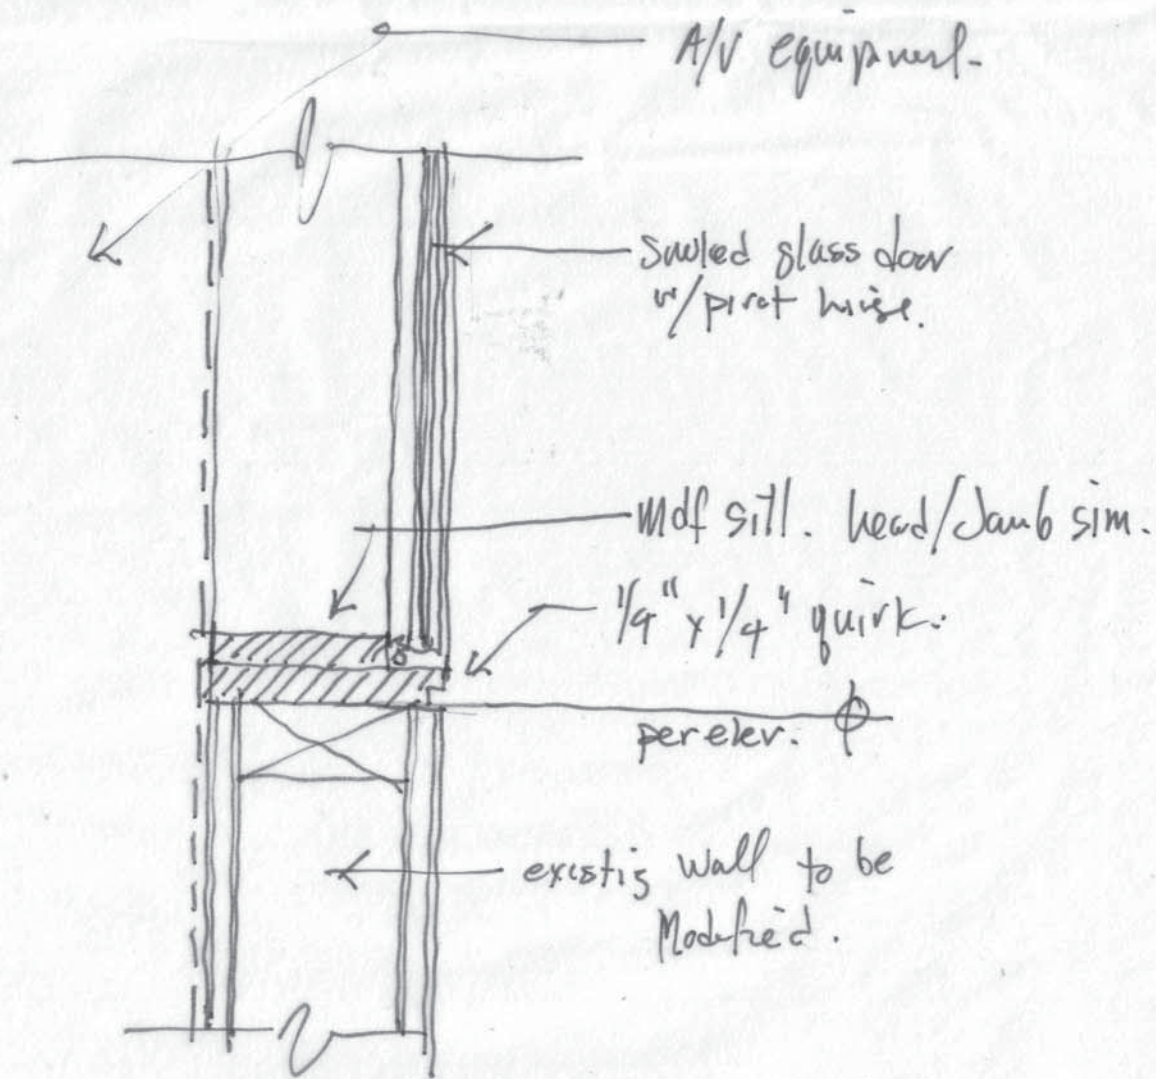 A/V equipment.
Smoked glass door
w/ pivot hinge.
Mdf sill. head/Jamb sim.
1/4" x 1/4" quirk.
per elev.
existing wall to be
Modified.